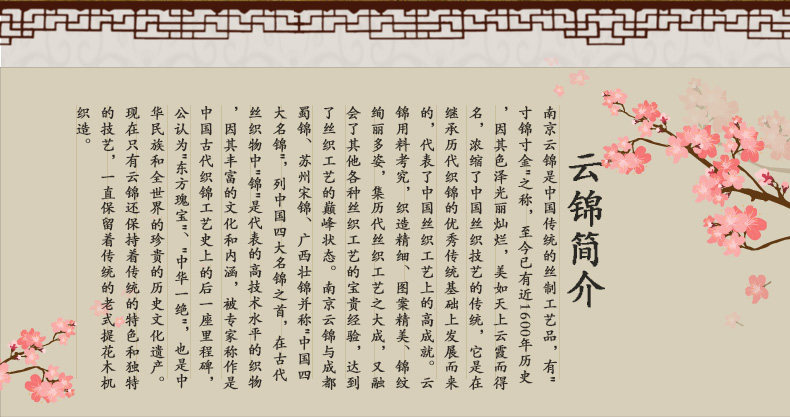 云锦简介
南京云锦是中国传统的丝制工艺品，有"
寸锦寸金"之称，至今已有近1600年历史
，因其色泽光丽灿烂，美如天上云霞而得
名，浓缩了中国丝织技艺的传统，它是在
继承历代织锦的优秀传统基础上发展而来
的，代表了中国丝织工艺上的高成就。云
锦用料考究，织造精细、图案精美、锦纹
绚丽多姿，集历代丝织工艺之大成，又融
会了其他各种丝织工艺的宝贵经验，达到
了丝织工艺的巅峰状态。南京云锦与成都
蜀锦、苏州宋锦、广西壮锦并称"中国四
大名锦"，列中国四大名锦之首，在古代
丝织物中"锦"是代表的高技术水平的织物
，因其丰富的文化和内涵，被专家称作是
中国古代织锦工艺史上的后一座里程碑，
公认为"东方瑰宝"、"中华一绝"，也是中
华民族和全世界的珍贵的历史文化遗产。
现在只有云锦还保持着传统的特色和独特
的技艺，一直保留着传统的老式提花木机
织造。